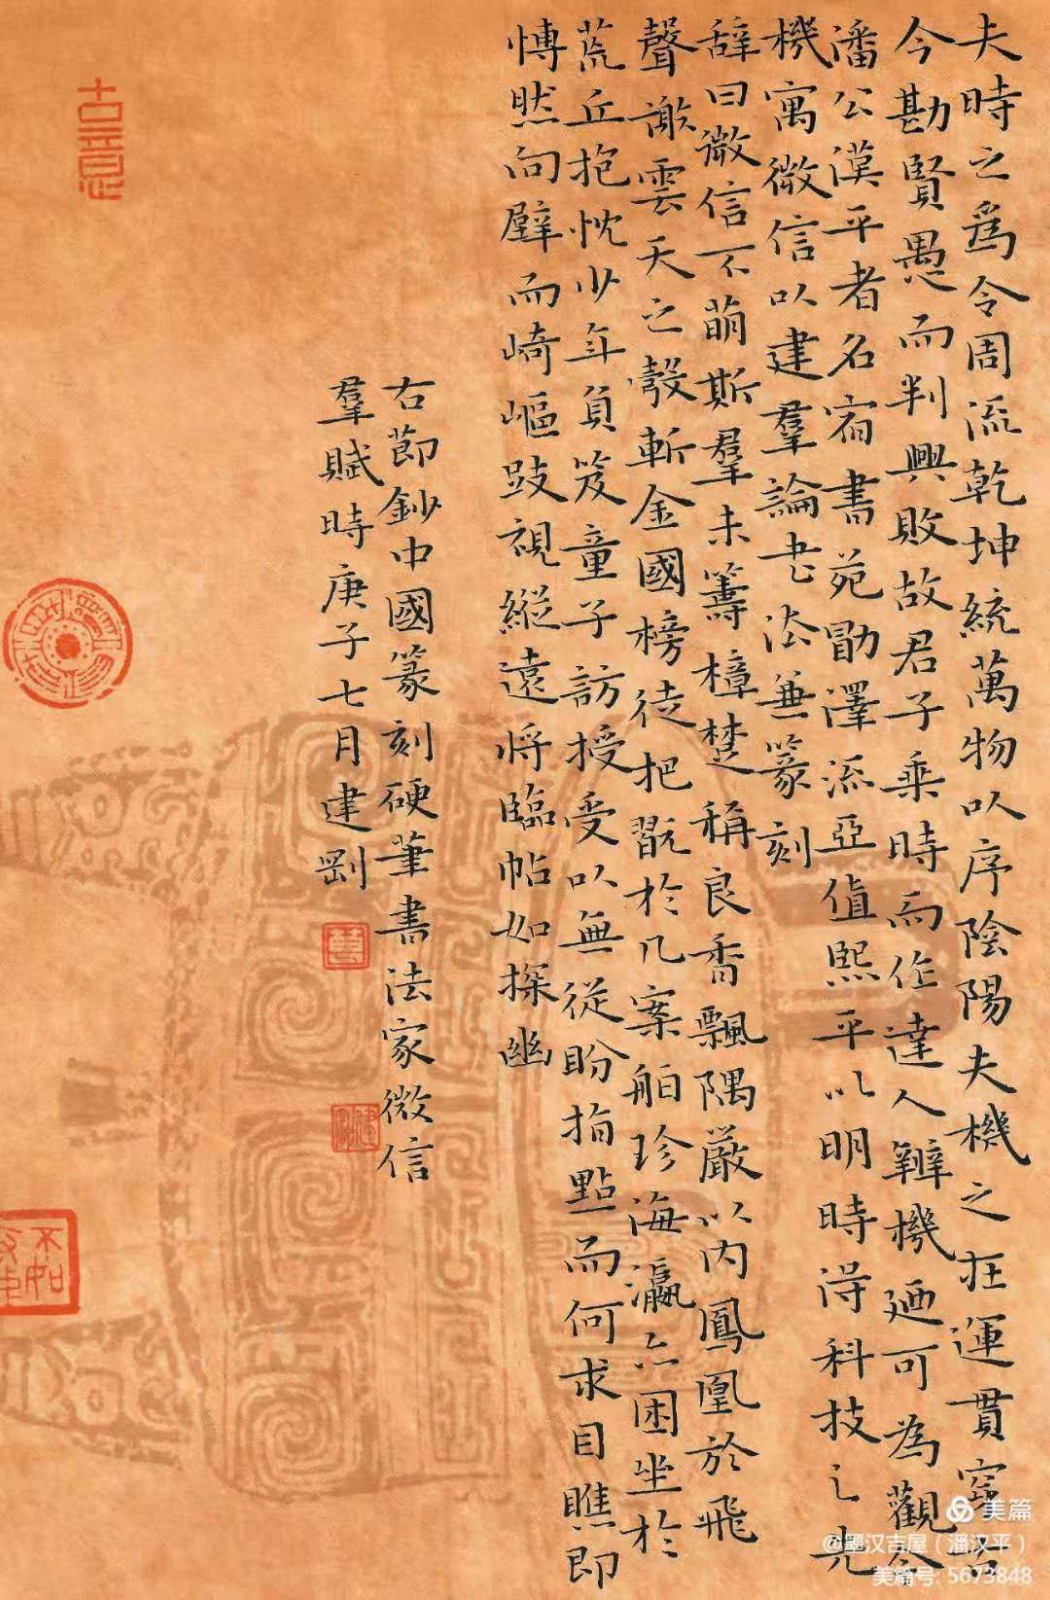 夫時之為令周流乾坤統萬物以序陰陽夫機之在運貫窮古
今勘賢愚而判興敗故君子乘時而作達人辨機廼可為觀今
潘公漢平者名宿書苑勛澤流亞值熙平以明時得科技之先
機寓微信以建羣論書法兼篆刻
辞曰微信不萌斯羣未籌樟楚稱良香飄隅嚴以内鳳凰於飛
聲漱雲天之彀斬金國榜徒把翫於几案舶珍海瀛亦困坐於
荒丘抱忱少年負笈童子訪授受以無從盼指點而何求目瞧即
愽然向壁而崎嶇歧視縱遠將臨帖如探幽
右節鈔中國篆刻硬筆書法家微信
羣賦時庚子七月建剛
古意
不如
美篇
@墨汉吉屋（潘汉平）
美篇号: 5673848